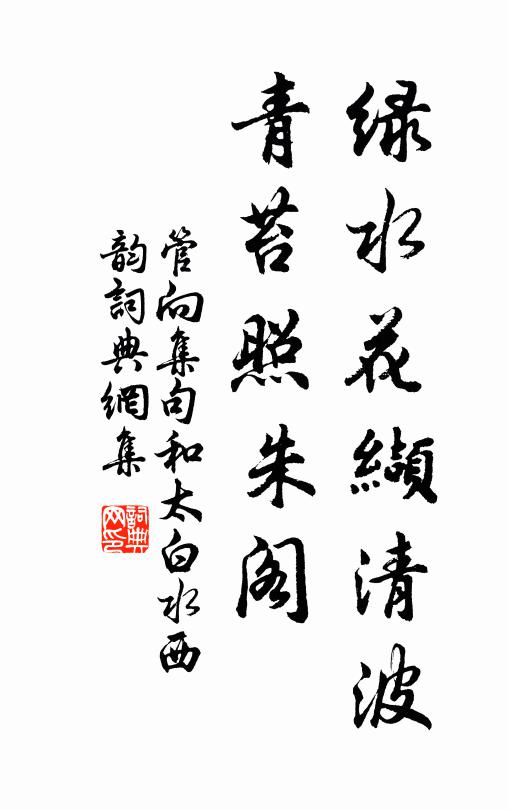 绿水花纈清波
青苔照朱阁
管向集句和太白水西
韵詞典網集
詞典
网印